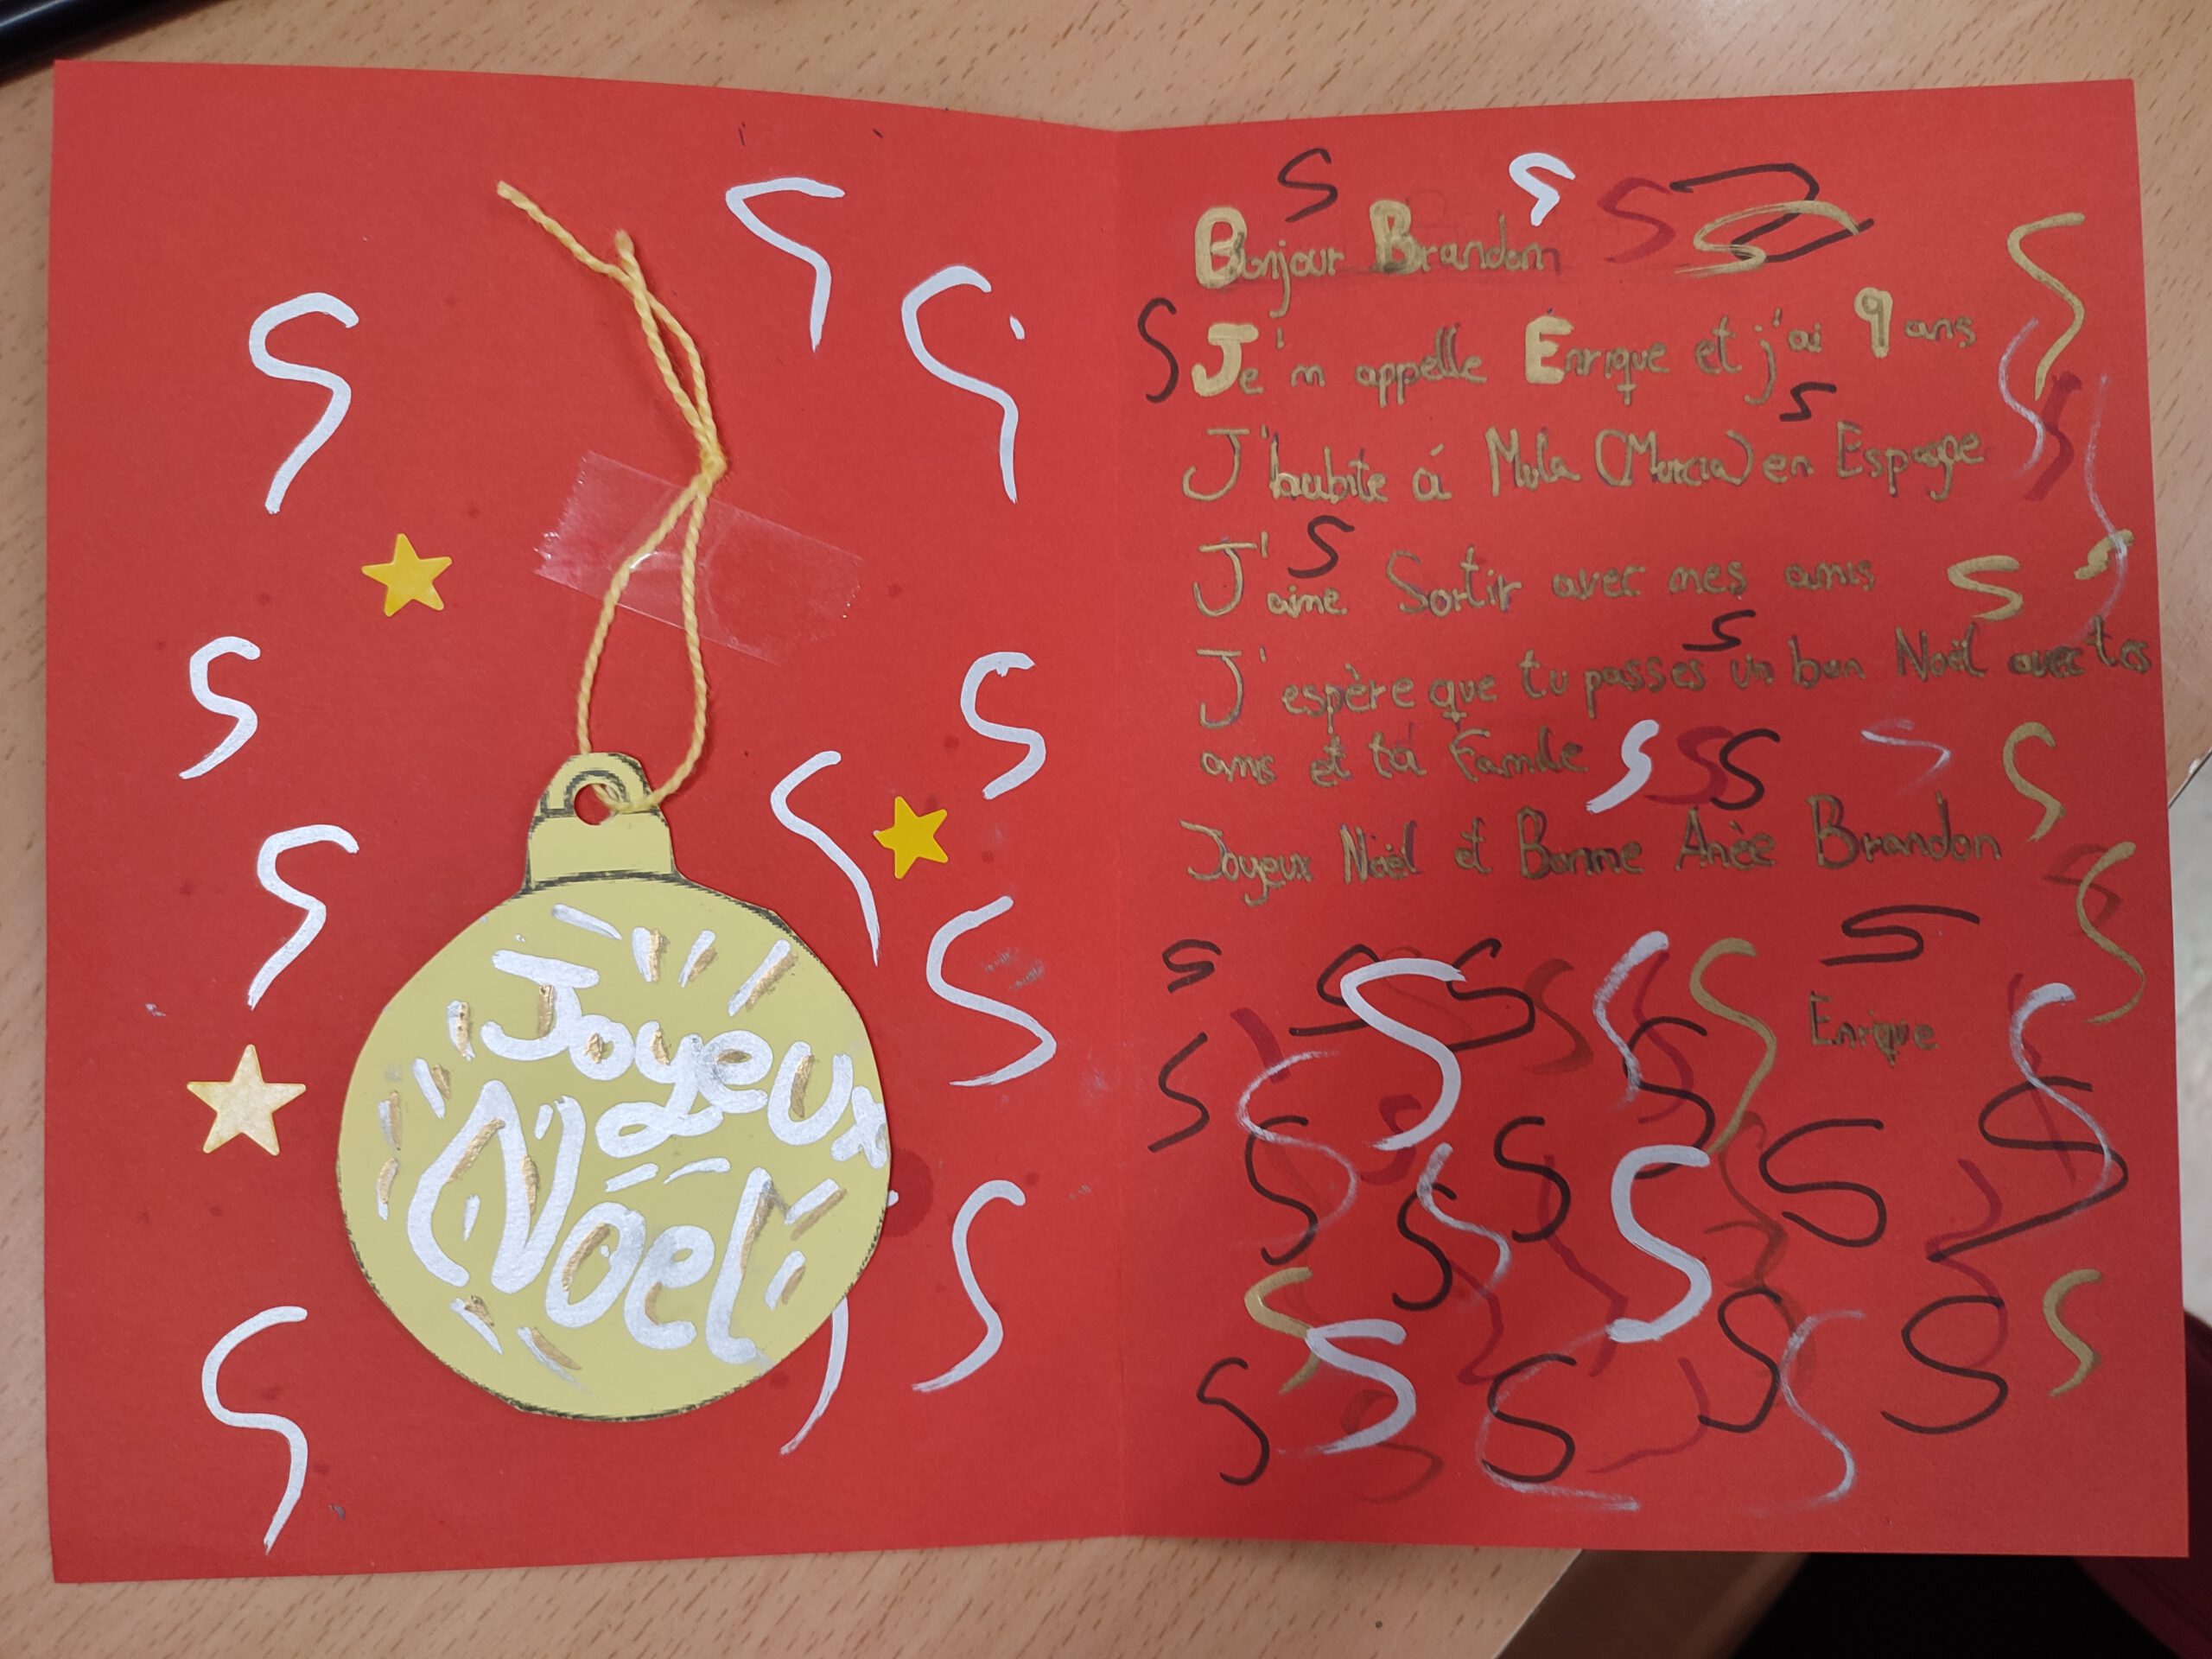 Joyeux
Noël
Bonjour Brandon
Je'm appelle Enrique et j'ai 9 ans
J'habite á Mula (Murcia) en Espage
J'aime Sortir avec mes amis
J'espère que tu passes un bon Noël avec tes
amis et ta Famile
Joyeux Noël et Bonne Anèe Brandon
Enrique